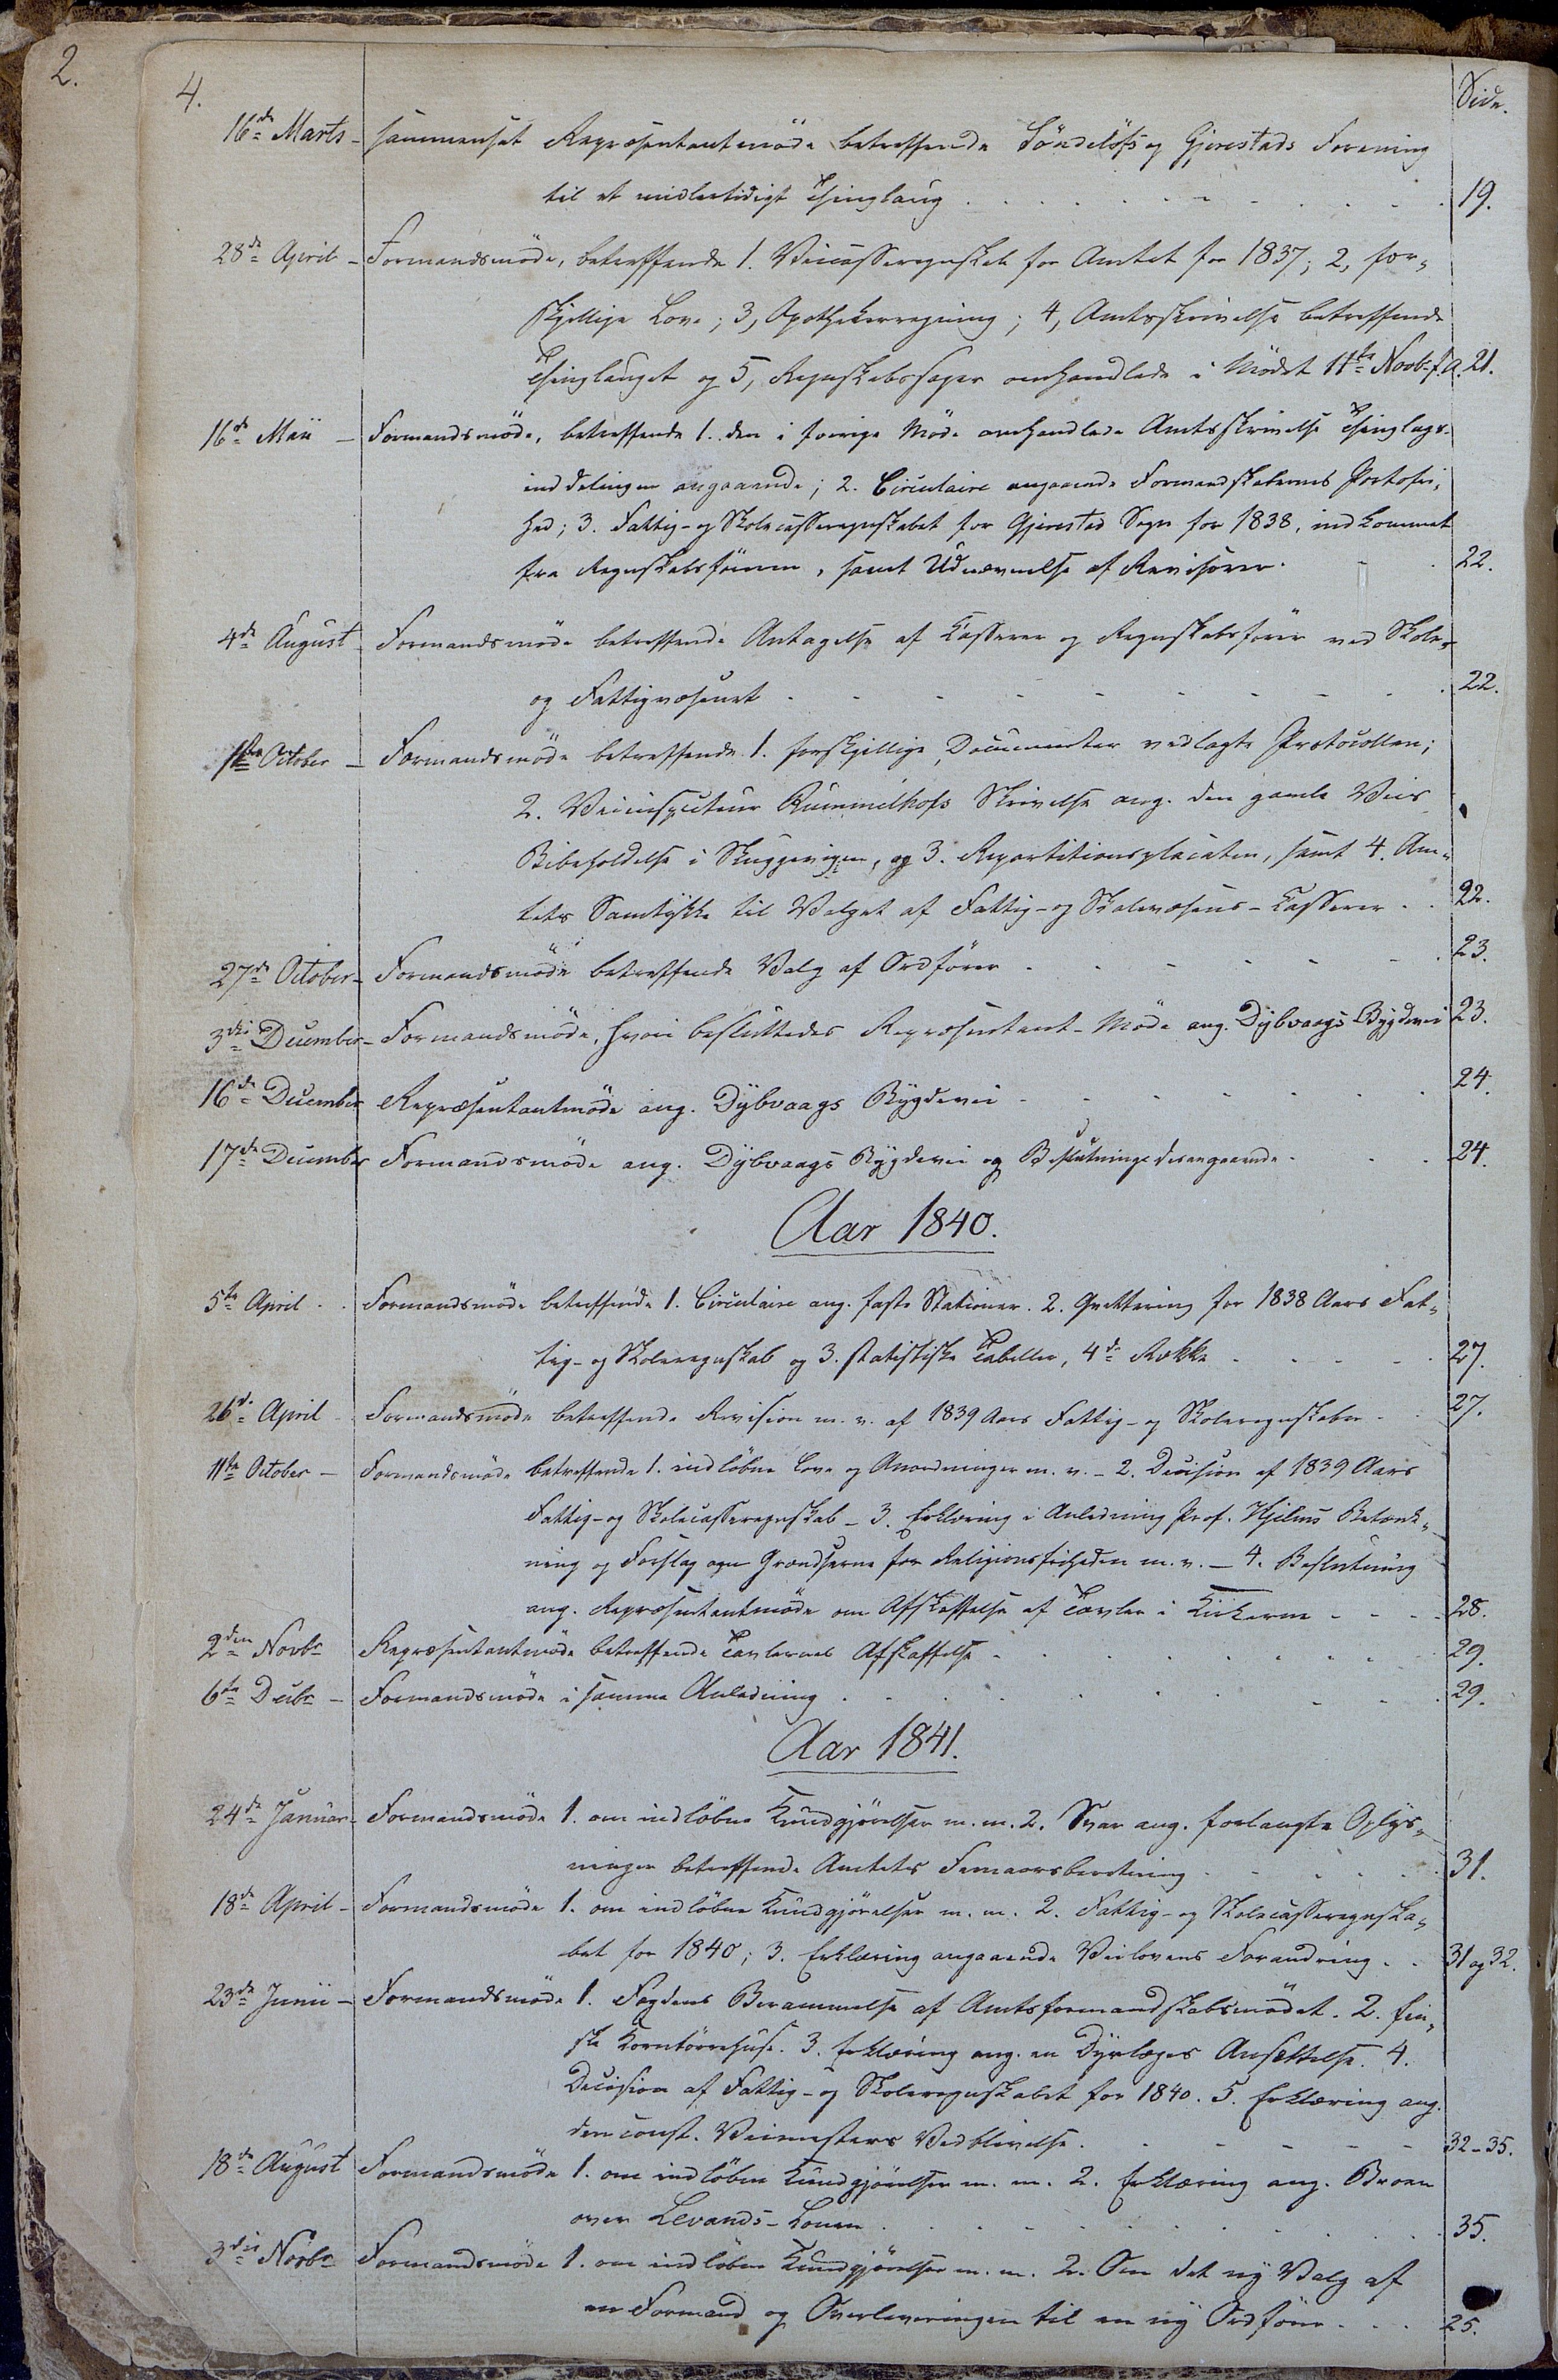 2.
4.
Side.
16de Marts - sammensat Repræsentantmöde betreffende Söndelöfs og Gjerestads Forening
til et midlertidigt Thinglaug . . . . . 19.
28de April - Formandsmöde, betreffende 1. Veicasseregnskab for Amtet for 1837; 2, for-
skjellige Love; 3, Apothekerregning; 4, Amtsskrivelse betreffende
Thinglauget og 5, Regnskabssager omhandlede i Mödet 11te Novbr f. A. 21.
16de Maii - Formandsmöde, betreffende 1. den i forrige Möde omhandlede Amtsskrivelse Thinglags-
inddelingen angaaende; 2. Circulaire angaaende Formandskabernes Portofri-
hed; 3. Fattig- og Skolecasseregnskabet for Gjerestad Sogn for 1838, indkommet
fra Regnskabsföreren, samt Udnævnelse af Revisorer . . 22.
4de August Formandsmöde betreffende Antagelse af Casserer og Regnskabsförer ved Skole-
og Fattigvæsenet . . . . . 22.
1ste October - Formandsmöde betreffende 1. forskjellige Documenter vedlagte Protocollen;
2. Veiinspecteur Rummelhofs Skrivelse ang. den gamle Veis
Bibeholdelse i Skuggevigen, og 3. Repartitionsplacaten, samt 4. Am-
tets Samtykke til Valget af Fattig- og Skolevæsens-Casserer . . 22.
27de October - Formandsmöde betreffende Valg af Ordförer . . . . . 23.
3die December - Formandsmöde, hvori besluttedes Repræsentant-Möde ang. Dybvaags Bygdevei 23.
16de December Repræsentantmöde ang. Dybvaags Bygdevei . . . . . 24.
17de December Formandsmöde ang. Dybvaags Bygdevei og Beslutninge desangaaende . . . 24.
Aar 1840.
5te April . . Formandsmöde betreffende 1. Circulaire ang. faste Stationer. 2. Qvittering for 1838 Aars Fat-
tig- og Skoleregnskab og 3. statistiske Tabeller, 4de Række . . . . . 27.
26de April - Formandsmöde betreffende Revision m. v. af 1839 Aars Fattig- og Skoleregnskaber . . 27.
11te October - Formandsmöde betreffende 1. indlöbne Love og Anordninger m. v. - 2. Decision af 1839 Aars
Fattig- og Skolecasseregnskab - 3. Erklæring i Anledning Prof. Hjelms Betænk-
ning og Forslag om Grændserne for Religionsfriheden m. v. - 4. Beslutning
ang. Repræsentantmöde om Afskaffelse af Tavler i Kirkerne . . . . 28.
2den Novbr Repræsentantmöde betreffende Tavlernes Afskaffelse . . . . . 29.
6te Decbr - Formandsmöde i samme Anledning . . . . . 29.
Aar 1841.
24de Januar - Formandsmöde 1. om indlöbne Kundgjörelser m. m. 2. Svar ang. forlangte Oplys-
ninger betreffende Amtets Femaarsberetning . . . . . 31.
18de April - Formandsmöde 1. om indlöbne Kundgjörelser m. m. 2. Fattig- og Skolecasseregnska-
bet for 1840; 3. Erklæring angaaende Veilovens Forandring . . 31 og 32.
23de Junii - Formandsmöde 1. Fogdens Berammelse af Amtsformandskabsmödet. 2. fin-
ske Korntörrehuse. 3. Erklæring ang. en Dyrlæges Ansættelse. 4.
Decision af Fattig- og Skoleregnskabet for 1840. 5. Erklæring ang.
den const. Veimesters Vedblivelse . . . . . 32-35.
18de August Formandsmöde 1. om indlöbne Kundgjörelser m. m. 2. Erklæring ang. Broen
over Levands-Lonen . . . . . 35.
3die Novbr Formandsmöde 1. om indlöbne Kundgjörelser m. m. 2. Om det ny Valg af
en Formand og Overleveringen til en ny Ordförer . . . 25.